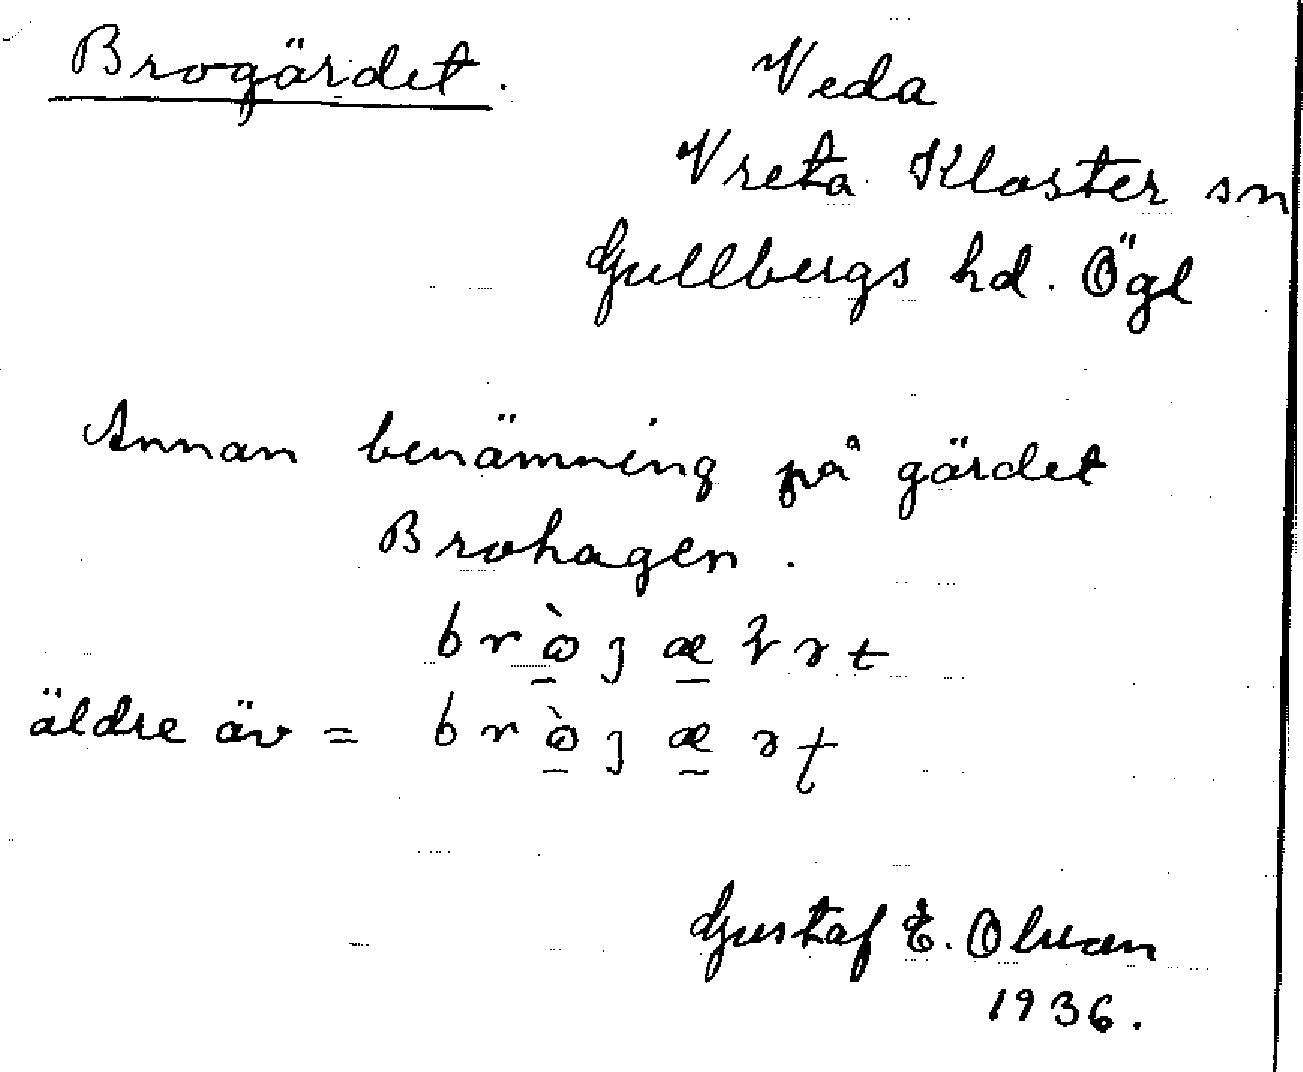 Brogärdet.
Veda
Vreta Kloster sn
Gullbergs hd. Ögl
Annan benämning på gärdet
Brohagen.
äldre äv =
Gustaf E. Olsson
1936.